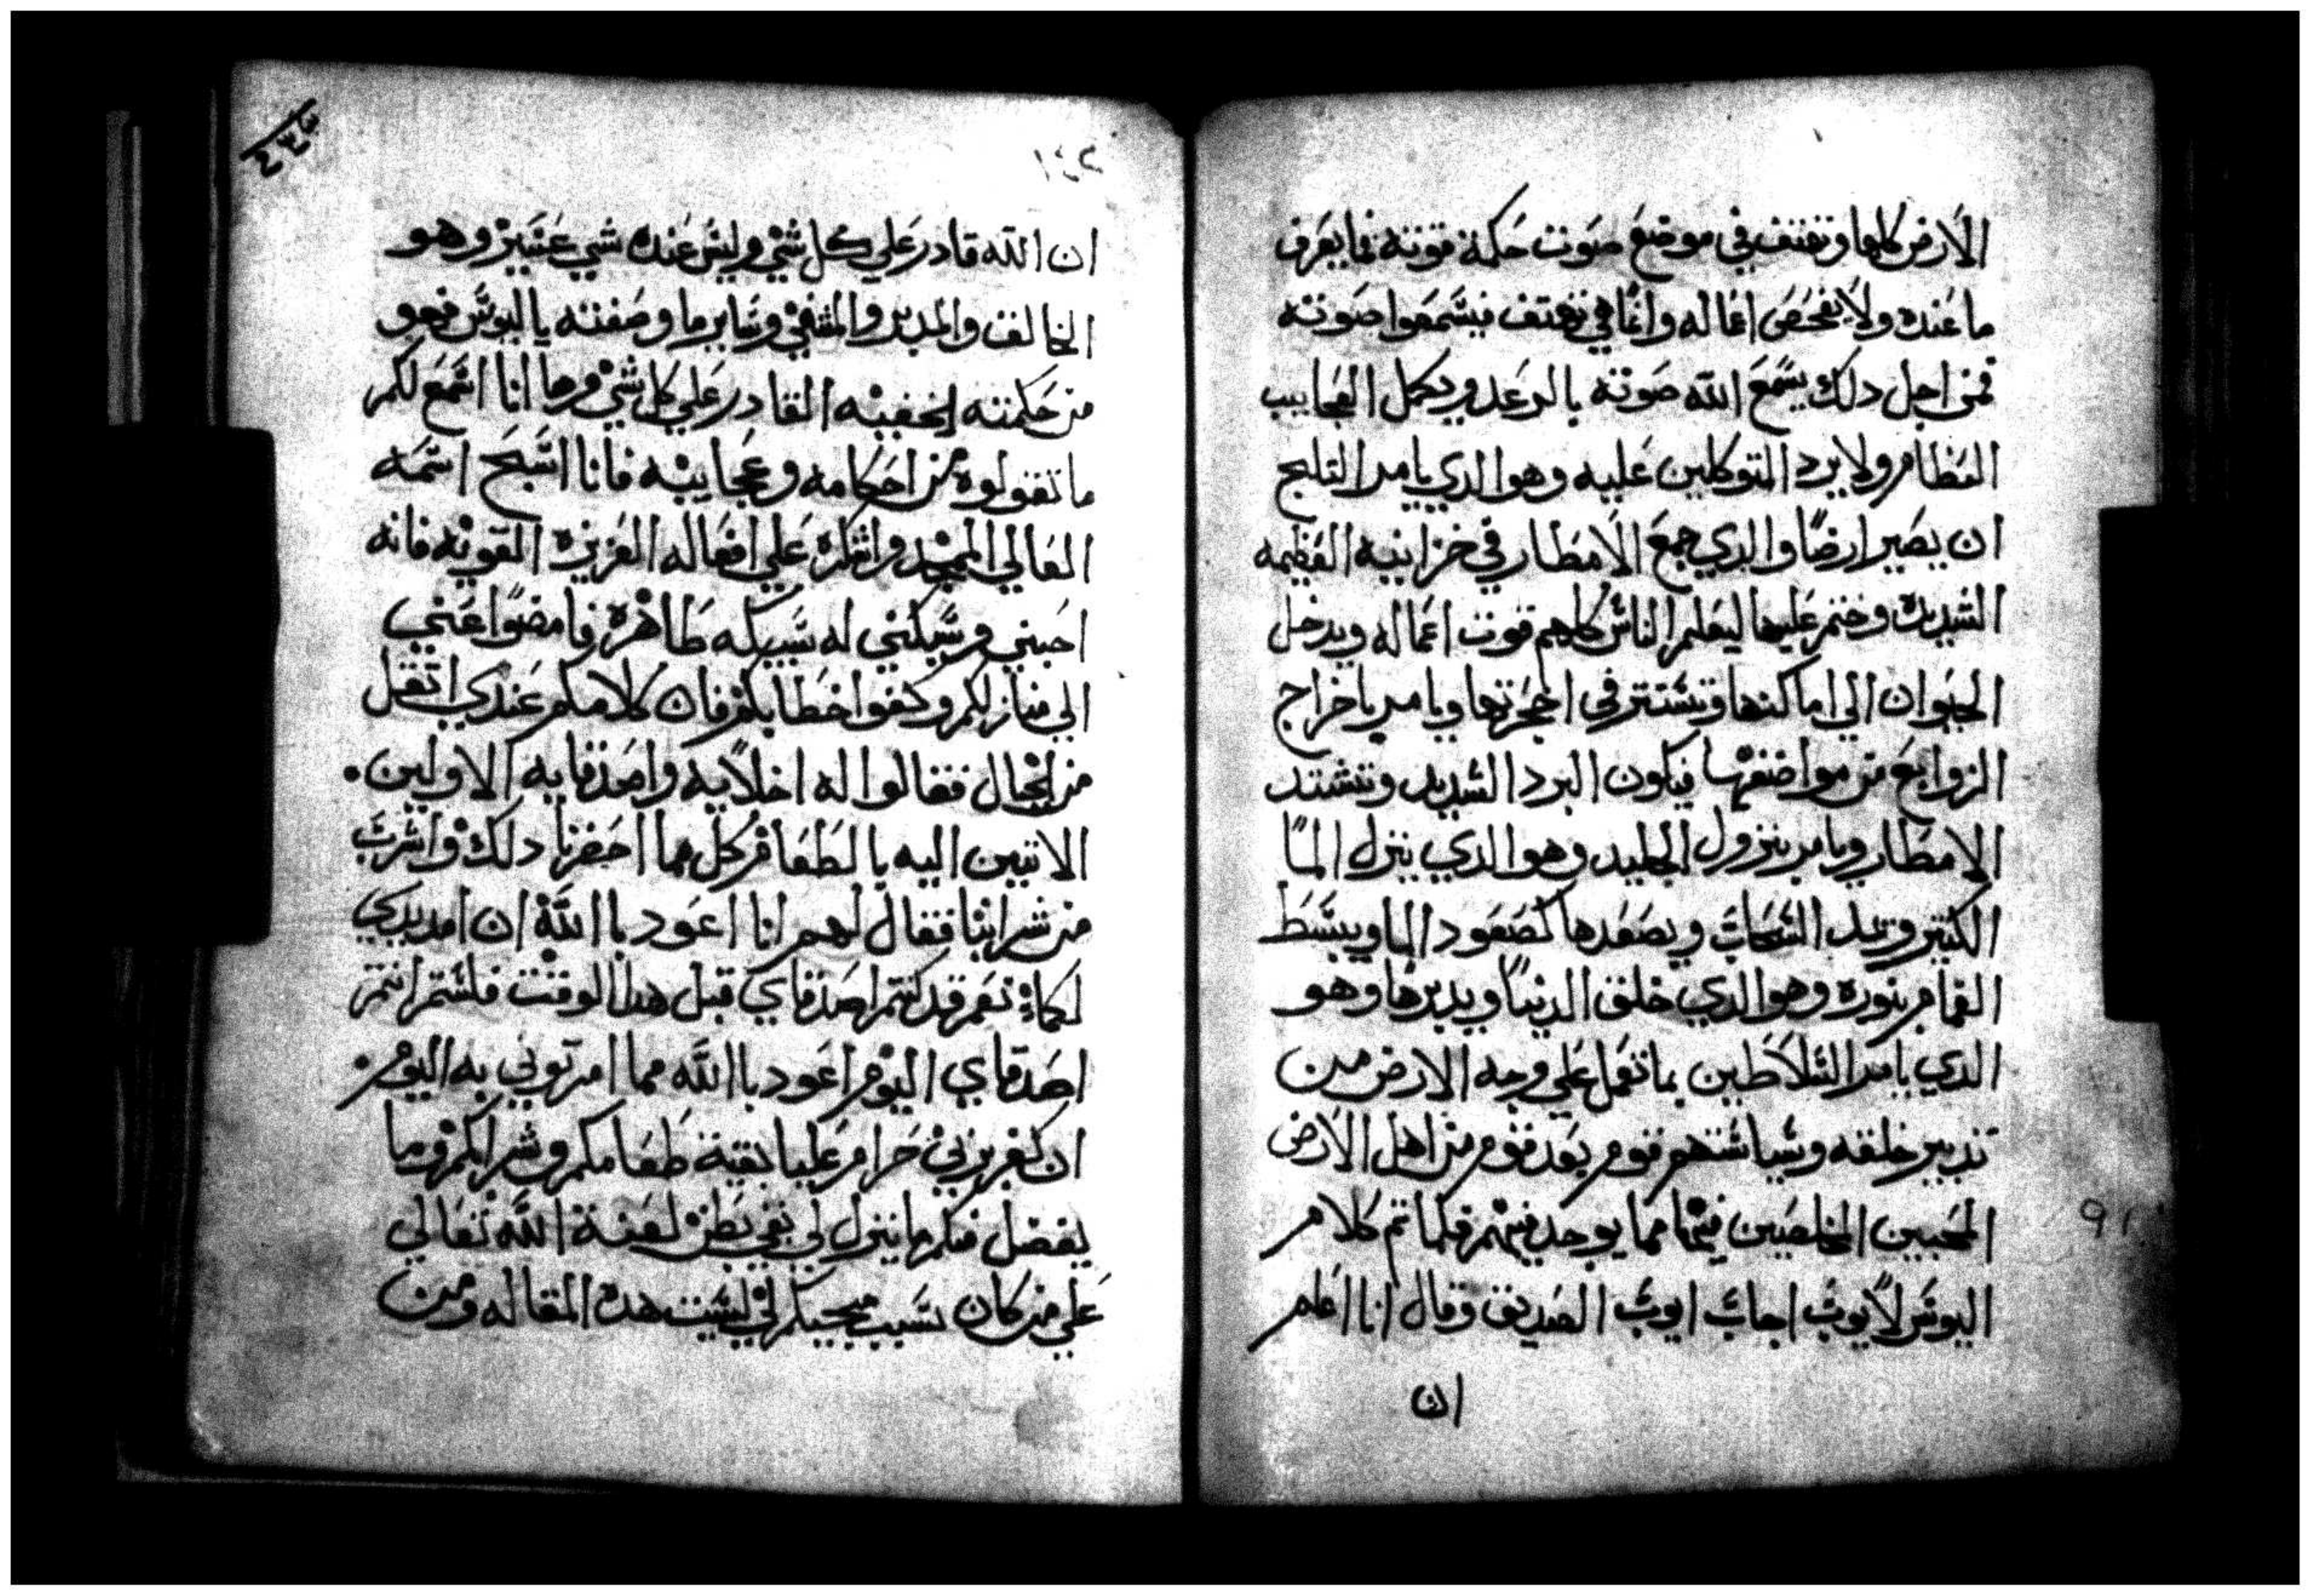 الارض كلها وتهتف في موضع صوت حكمة قوته فما يعرف
ما عنده ولا يفحص اعماله وانما هي تهتف فيسمعوا صوته
فمن اجل دلك يسمع الله صوته بالرعد ويكمل العجايب
العظام ولا يرد المتوكلين عليه وهو الدي يامر التلج
ان يصير ارضا والدي جمع الامطار في خزاينه العظيمه
الشديده وختم عليها ليعلم الناس كلهم قوت اعماله ويدخل
الحيوان الي اماكنها وتستتر في احجرتها ويامر باخراج
الزوابع من مواضعها فيكون البرد الشديد وتشتد
الامطار ويامر بنزول الجليد وهو الدي ينزل الما
الكتير السحاب ويصعدها كصعود الما ويبسط
الغمام بنوره وهو الدي خلق الدنيا ويدبرها وهو
الدي يامر السلاطين بما تعمل علي وجه الارض من
تدبير خلقه وسياستهم قوم بعد قوم من اهل الارض
المحبين المخلصين فيها مما يوجد فيهم فلما تم كلام
اليوس لايوب اجاب ايوب الصديق وقال انا اعلم
ان
٢٣٣
١٤٢
ان الله قادر علي كل شي وليس عنده شي عسير وهو
الخالق والمدبر والمشفي وساير ما وصفته يا اليوس فهو
من حكمته الخفيه القادر علي كل شي وها انا اسمع لكم
ما تقولوه من احكامه وعجايبه فانا اسبح اسمه
العالي المجيد واشكره علي افعاله العزيزه القويه فانه
احبني وسبكني له سبيكه طاهره فامضوا عني
الي منازلكم وكفوا خطابكم فان كلامكم عندي اتقل
من الجبال فقالوا له اخلايه واصدقايه الاولين
الاتيين اليه بالطعام كل مما احضرنا دلك واشرب
من شرابنا فقال لهم انا اعود باالله ان امد يدي
لكما نعم قد كنتم اصدقاي قبل هدا الوقت فلستم انتم
اصدقاي اليوم اعود باالله مما امرتوني به اليوم
ان حرام عليا بقية طعامكم وشرابكم وما
يفضل منكم ما ينزل لي في بطن لعنة الله تعالي
علي من كان سبب مجيكم لي ليست هده المقاله ومن